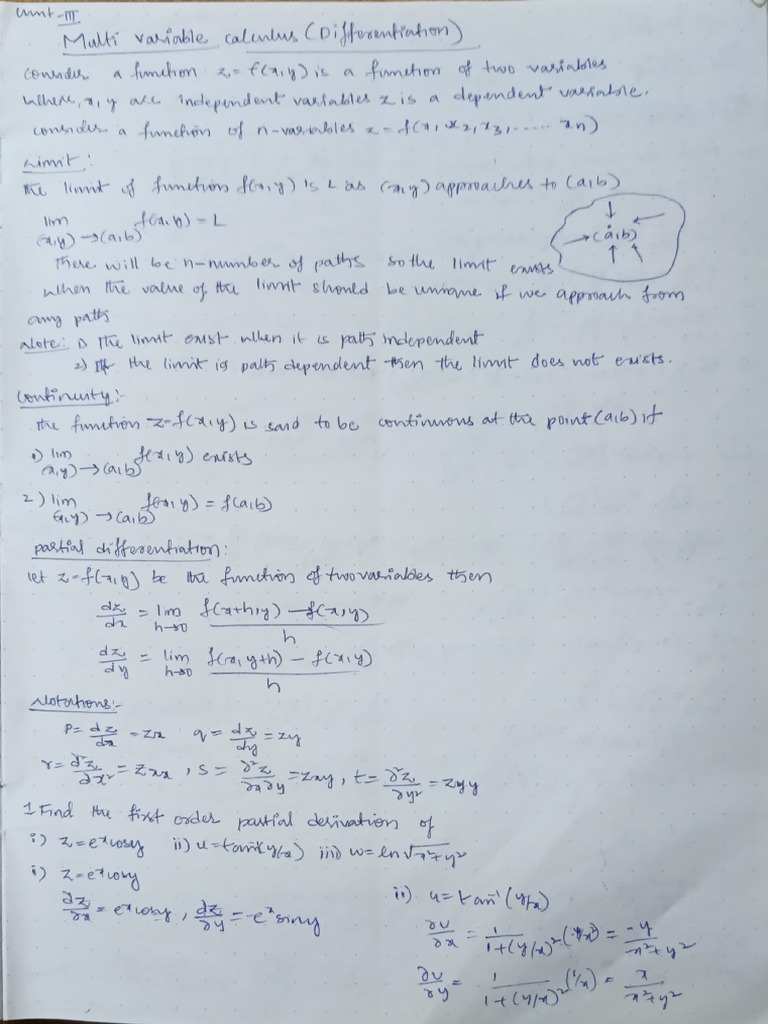 Unit-III
Multi variable calculus (Differentiation)
consider a function z=f(x,y) is a function of two variables
where, x,y are independent variables z is a dependent variable.
consider a function of n-variables z=f(x1,x2,x3,..... xn)
Limit:
The limit of function f(x,y) is L as (x,y) approaches to (a,b)
lim f(x,y) = L
(x,y)→(a,b)
→(a,b)
There will be n-number of paths so the limit exists
when the value of the limit should be unique if we approach from
any paths
Note: 1) The limit exist when it is path independent
2) If the limit is path dependent then the limit does not exists.
Continuity:-
the function z=f(x,y) is said to be continuous at the point (a,b) if
1) lim f(x,y) exists
(x,y)→(a,b)
2) lim f(x,y) = f(a,b)
(x,y)→(a,b)
partial differentiation:
let z=f(x,y) be the function of two variables then
dz/dx = lim h→0 f(x+h,y) - f(x,y) / h
dz/dy = lim h→0 f(x,y+h) - f(x,y) / h
Notations:-
P = dz/dx = zx q = dz/dy = zy
r = ∂²z/∂x² = zxx , s = ∂²z/∂x∂y = zxy , t = ∂²z/∂y² = zyy
1. Find the first order partial derivation of
i) z=eˣcosy ii) u=tan⁻¹(y/x) iii) w=ln√x²+y²
i) z=eˣcosy
∂z/∂x = eˣcosy , ∂z/∂y = -eˣsiny
ii) u=tan⁻¹(y/x)
∂u/∂x = 1/1+(y/x)² (-y/x²) = -y/x²+y²
∂u/∂y = 1/1+(y/x)² (1/x) = x/x²+y²